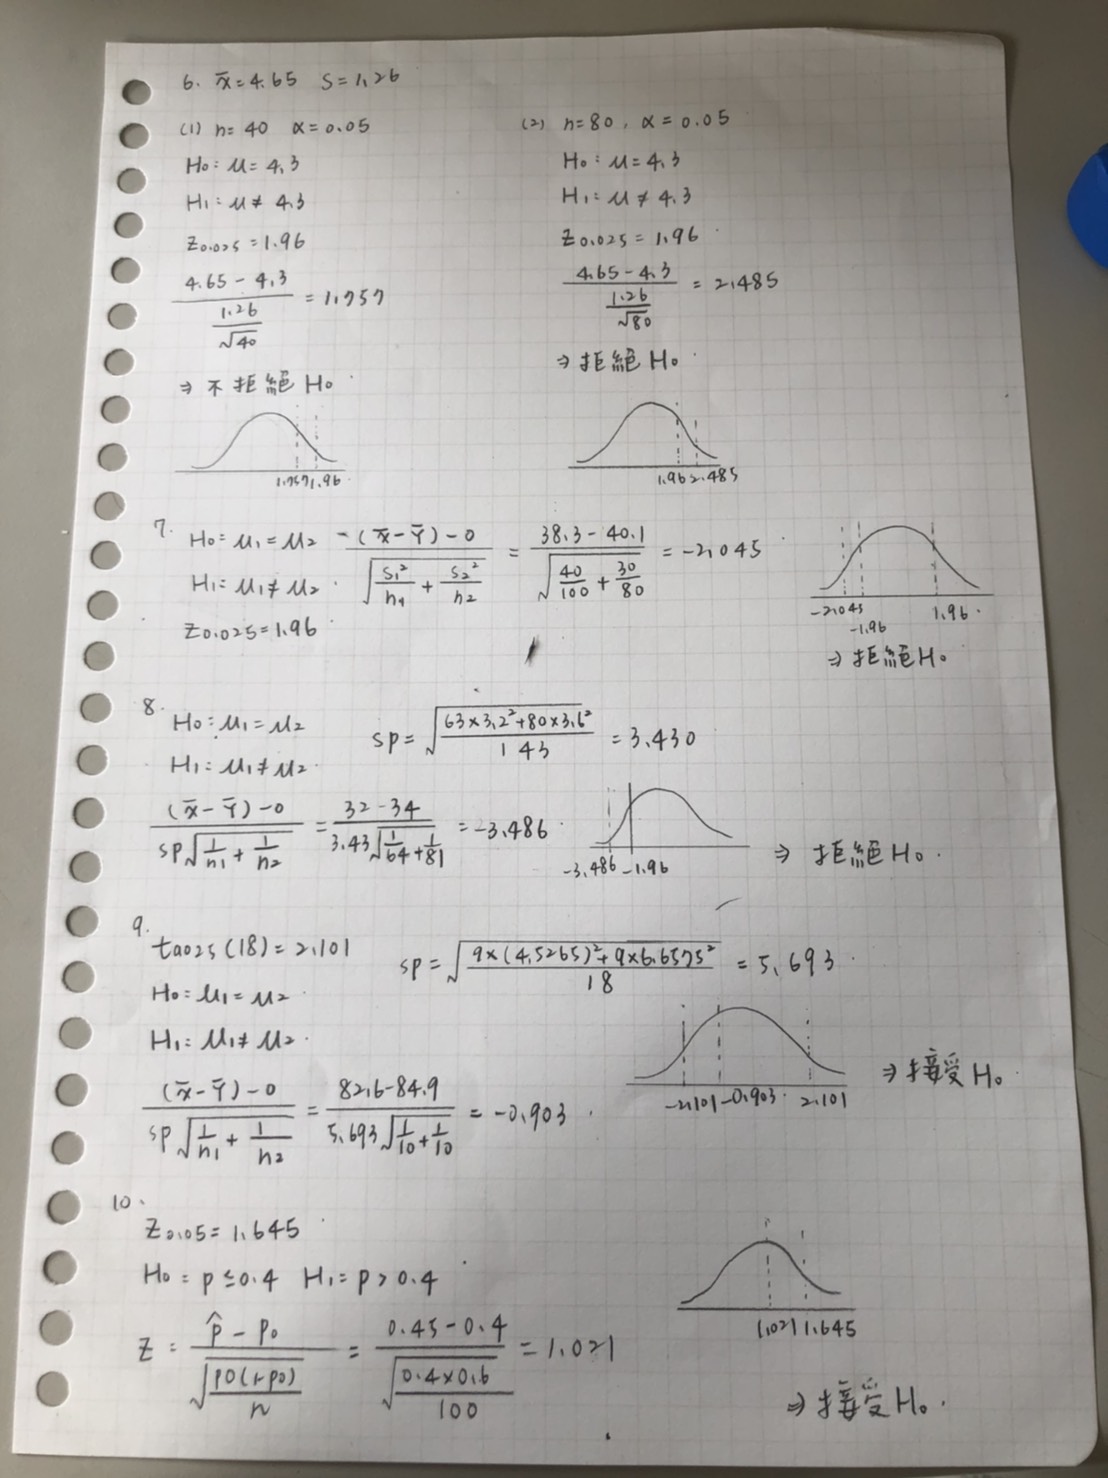 6. x̄=4.65 S=1.26
(1) n=40 α=0.05
H₀: μ=4.3
H₁: μ≠4.3
Z₀.₀₂₅=1.96
(4.65-4.3)/(1.26/√40) = 1.757
⇒ 不拒絕 H₀
1.757 1.96
(2) n=80, α=0.05
H₀: μ=4.3
H₁: μ≠4.3
Z₀.₀₂₅=1.96
(4.65-4.3)/(1.26/√80) = 2.485
⇒ 拒絕 H₀
1.96 2.485
7. H₀: μ₁=μ₂
H₁: μ₁≠μ₂
Z₀.₀₂₅=1.96
((x̄-Ȳ)-0)/√(S₁²/n₁+S₂²/n₂) = (38.3-40.1)/√(40/100+30/80) = -2.045
-2.045 -1.96 1.96
⇒ 拒絕 H₀
8. H₀: μ₁=μ₂
H₁: μ₁≠μ₂
sp=√((63×3.2²+80×3.6²)/143) = 3.430
((x̄-Ȳ)-0)/(sp√(1/n₁+1/n₂)) = (32-34)/(3.43√(1/64+1/81)) = -3.486
-3.486 -1.96
⇒ 拒絕 H₀.
9.
t₀.₀₂₅(18)=2.101
H₀: μ₁=μ₂
H₁: μ₁≠μ₂
sp=√((9×(4.5265)²+9×6.6575²)/18) = 5.693
((x̄-Ȳ)-0)/(sp√(1/n₁+1/n₂)) = (82.6-84.9)/(5.693√(1/10+1/10)) = -0.903
-2.101 -0.903 2.101
⇒ 接受 H₀
10.
Z₀.₀₅=1.645
H₀: p≤0.4 H₁: p>0.4
Z = (p̂-p₀)/√(p₀(1-p₀)/n) = (0.45-0.4)/√(0.4×0.6/100) = 1.021
1.021 1.645
⇒ 接受 H₀.